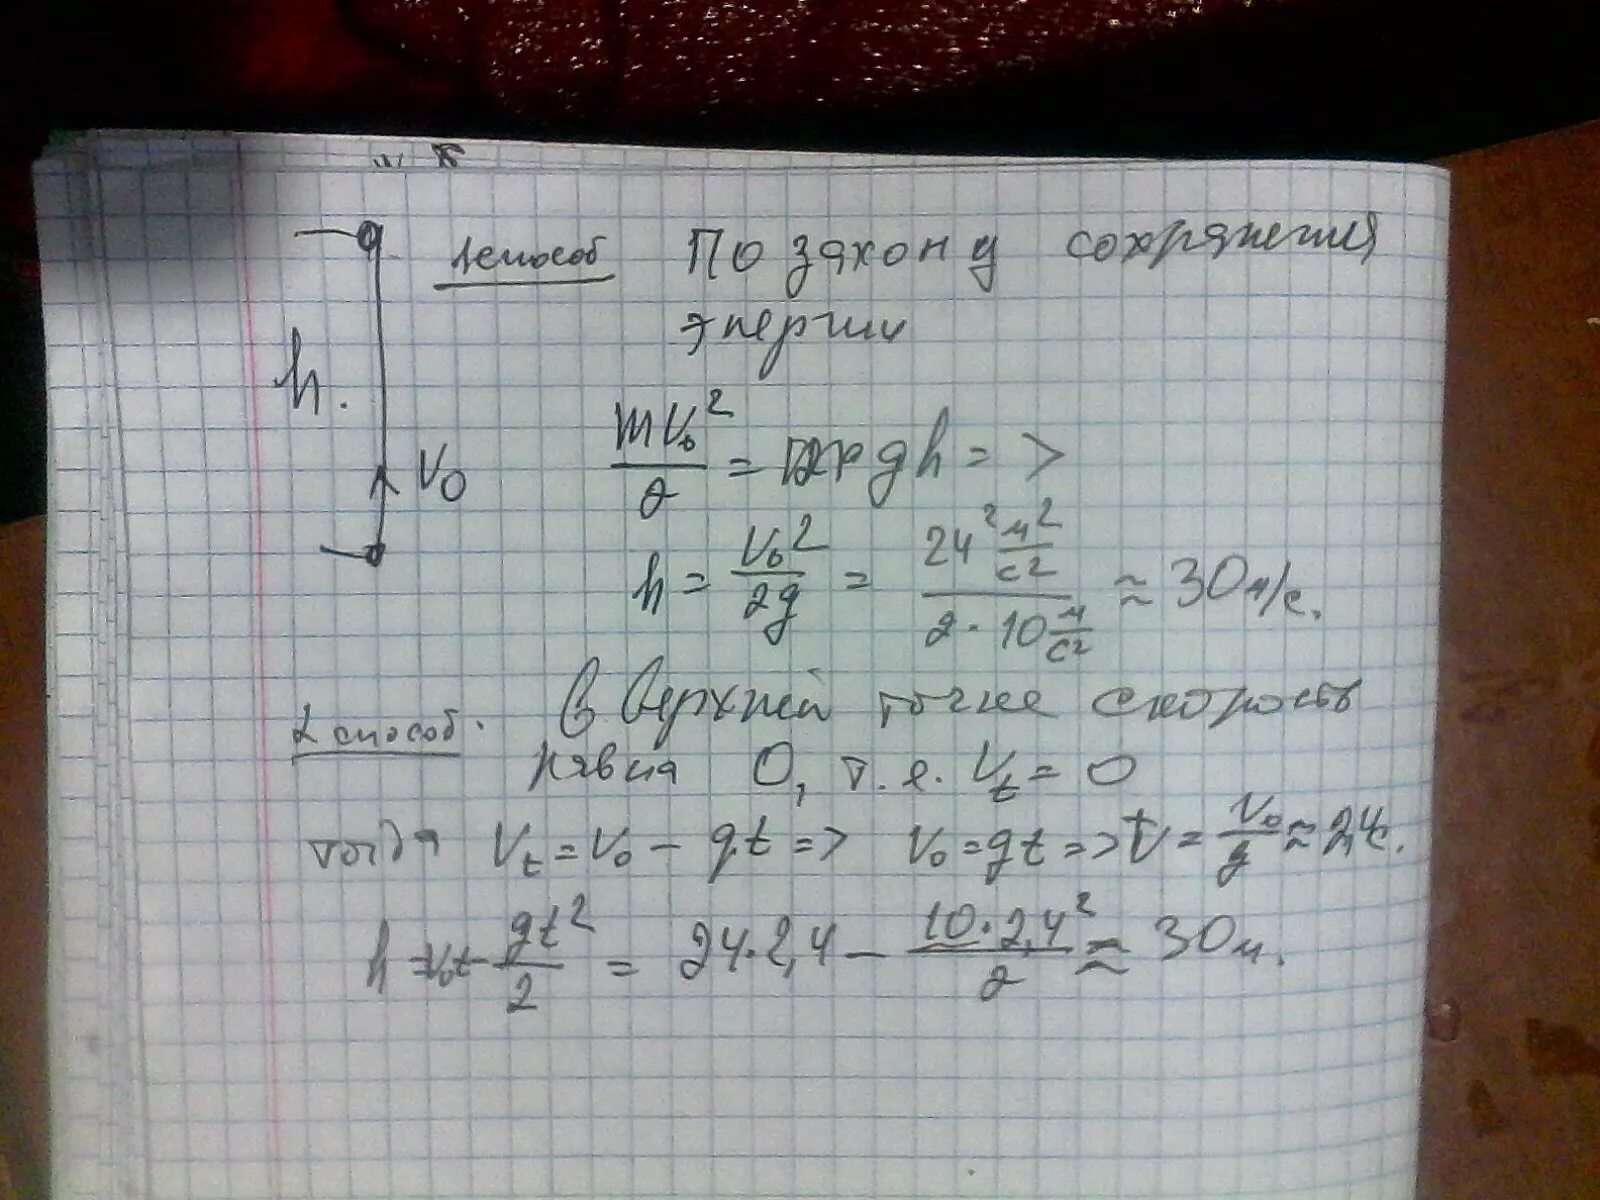 1 способ По закону сохранения
энергии
h.
V₀
mV₀²/2 = mgh =>
h = V₀²/2g = 24² м²/с² / 2·10 м/с² ≈ 30 м/с.
2 способ. В верхней точке скорость
равна 0, т.е. Vt = 0
тогда Vt = V₀ - gt => V₀ = gt => t = V₀/g ≈ 2,4с.
h = V₀t - gt²/2 = 24·2,4 - 10·2,4²/2 ≈ 30м.